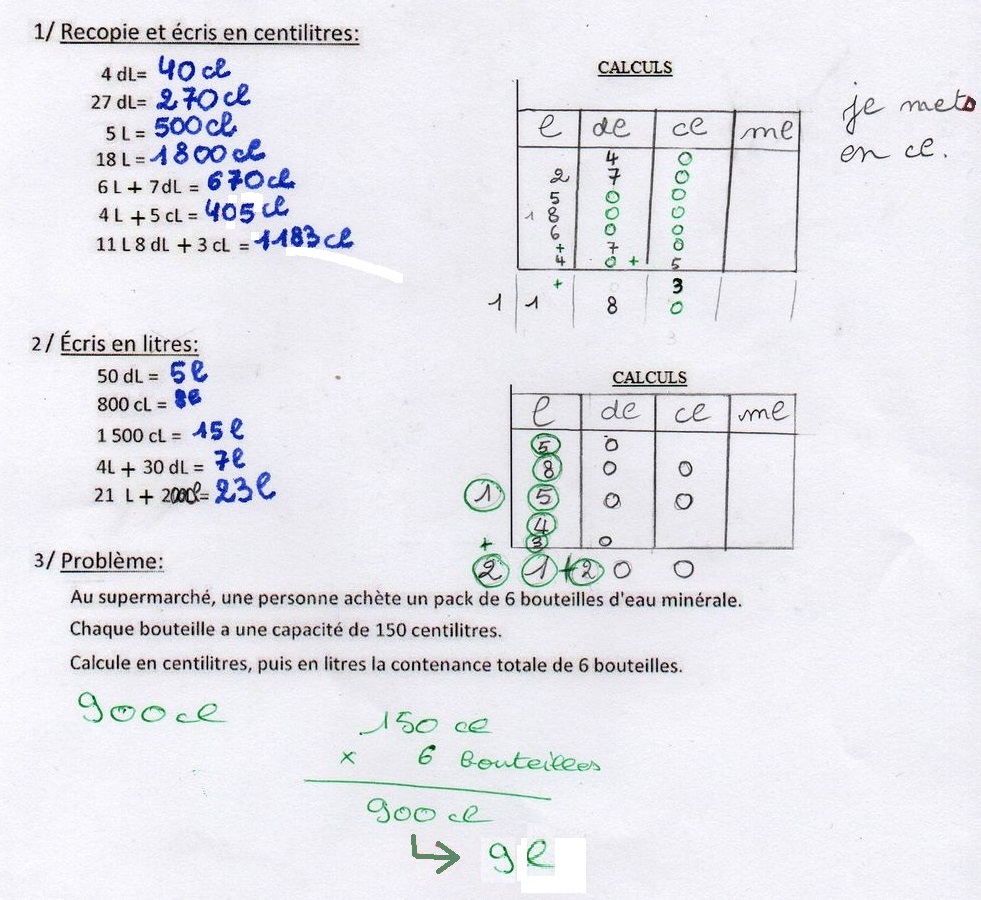 1/ Recopie et écris en centilitres:
4 dL= 40 cl
27 dL= 270 cl
5 L = 500 cl
18 L = 1800 cl
6 L + 7 dL = 670 cl
4 L + 5 cL = 405 cl
11 L 8 dL + 3 cL = 1183 cl
CALCULS
l dl cl ml
4 0
2 7 0
5 0 0
1 8 0 0
6 0 0
+ 7 0
4 0 + 5
+ 3
1 1 8 0
je mets
en cl.
2/ Écris en litres:
50 dL = 5 l
800 cL = 8 l
1 500 cL = 15 l
4L + 30 dL = 7 l
21 L + 200cl= 23 l
CALCULS
l dl cl ml
5 0
8 0 0
1 5 0 0
4
+ 3 0
2 1 + 2 0 0
3/ Problème:
Au supermarché, une personne achète un pack de 6 bouteilles d'eau minérale.
Chaque bouteille a une capacité de 150 centilitres.
Calcule en centilitres, puis en litres la contenance totale de 6 bouteilles.
900 cl
150 cl
x 6 bouteilles
900 cl
↳ 9 l